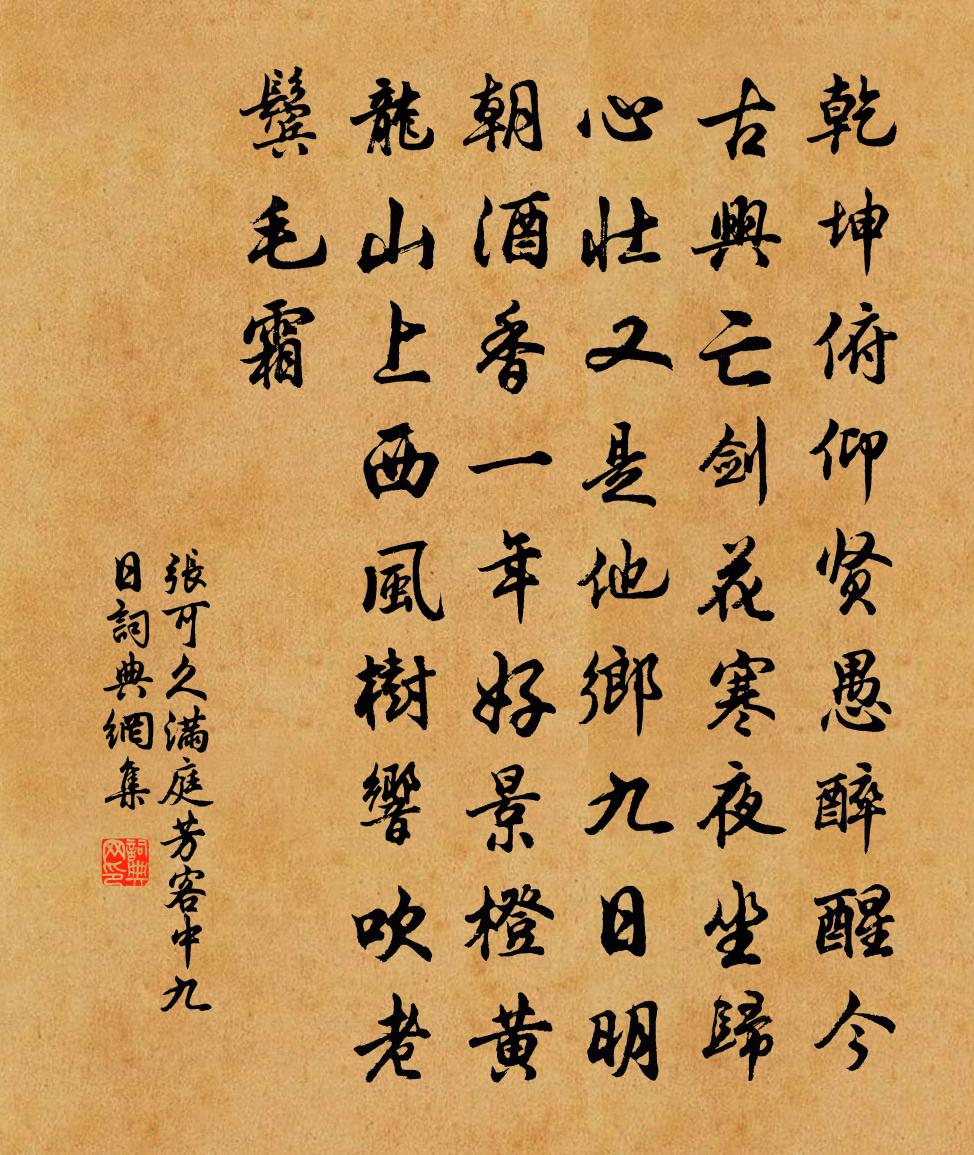 乾坤俯仰贤愚醉醒今
古興亡剑花寒夜坐歸
心壮又是他鄉九日明
朝酒香一年好景橙黄
龍山上西風樹響吹老
鬓毛霜
張可久满庭芳客中九
日詞典網集
詞典网印